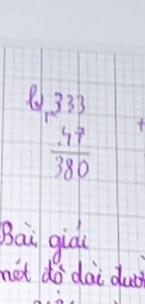 b, 333
+
47
380
Bài giải
nét đồ dài dưới